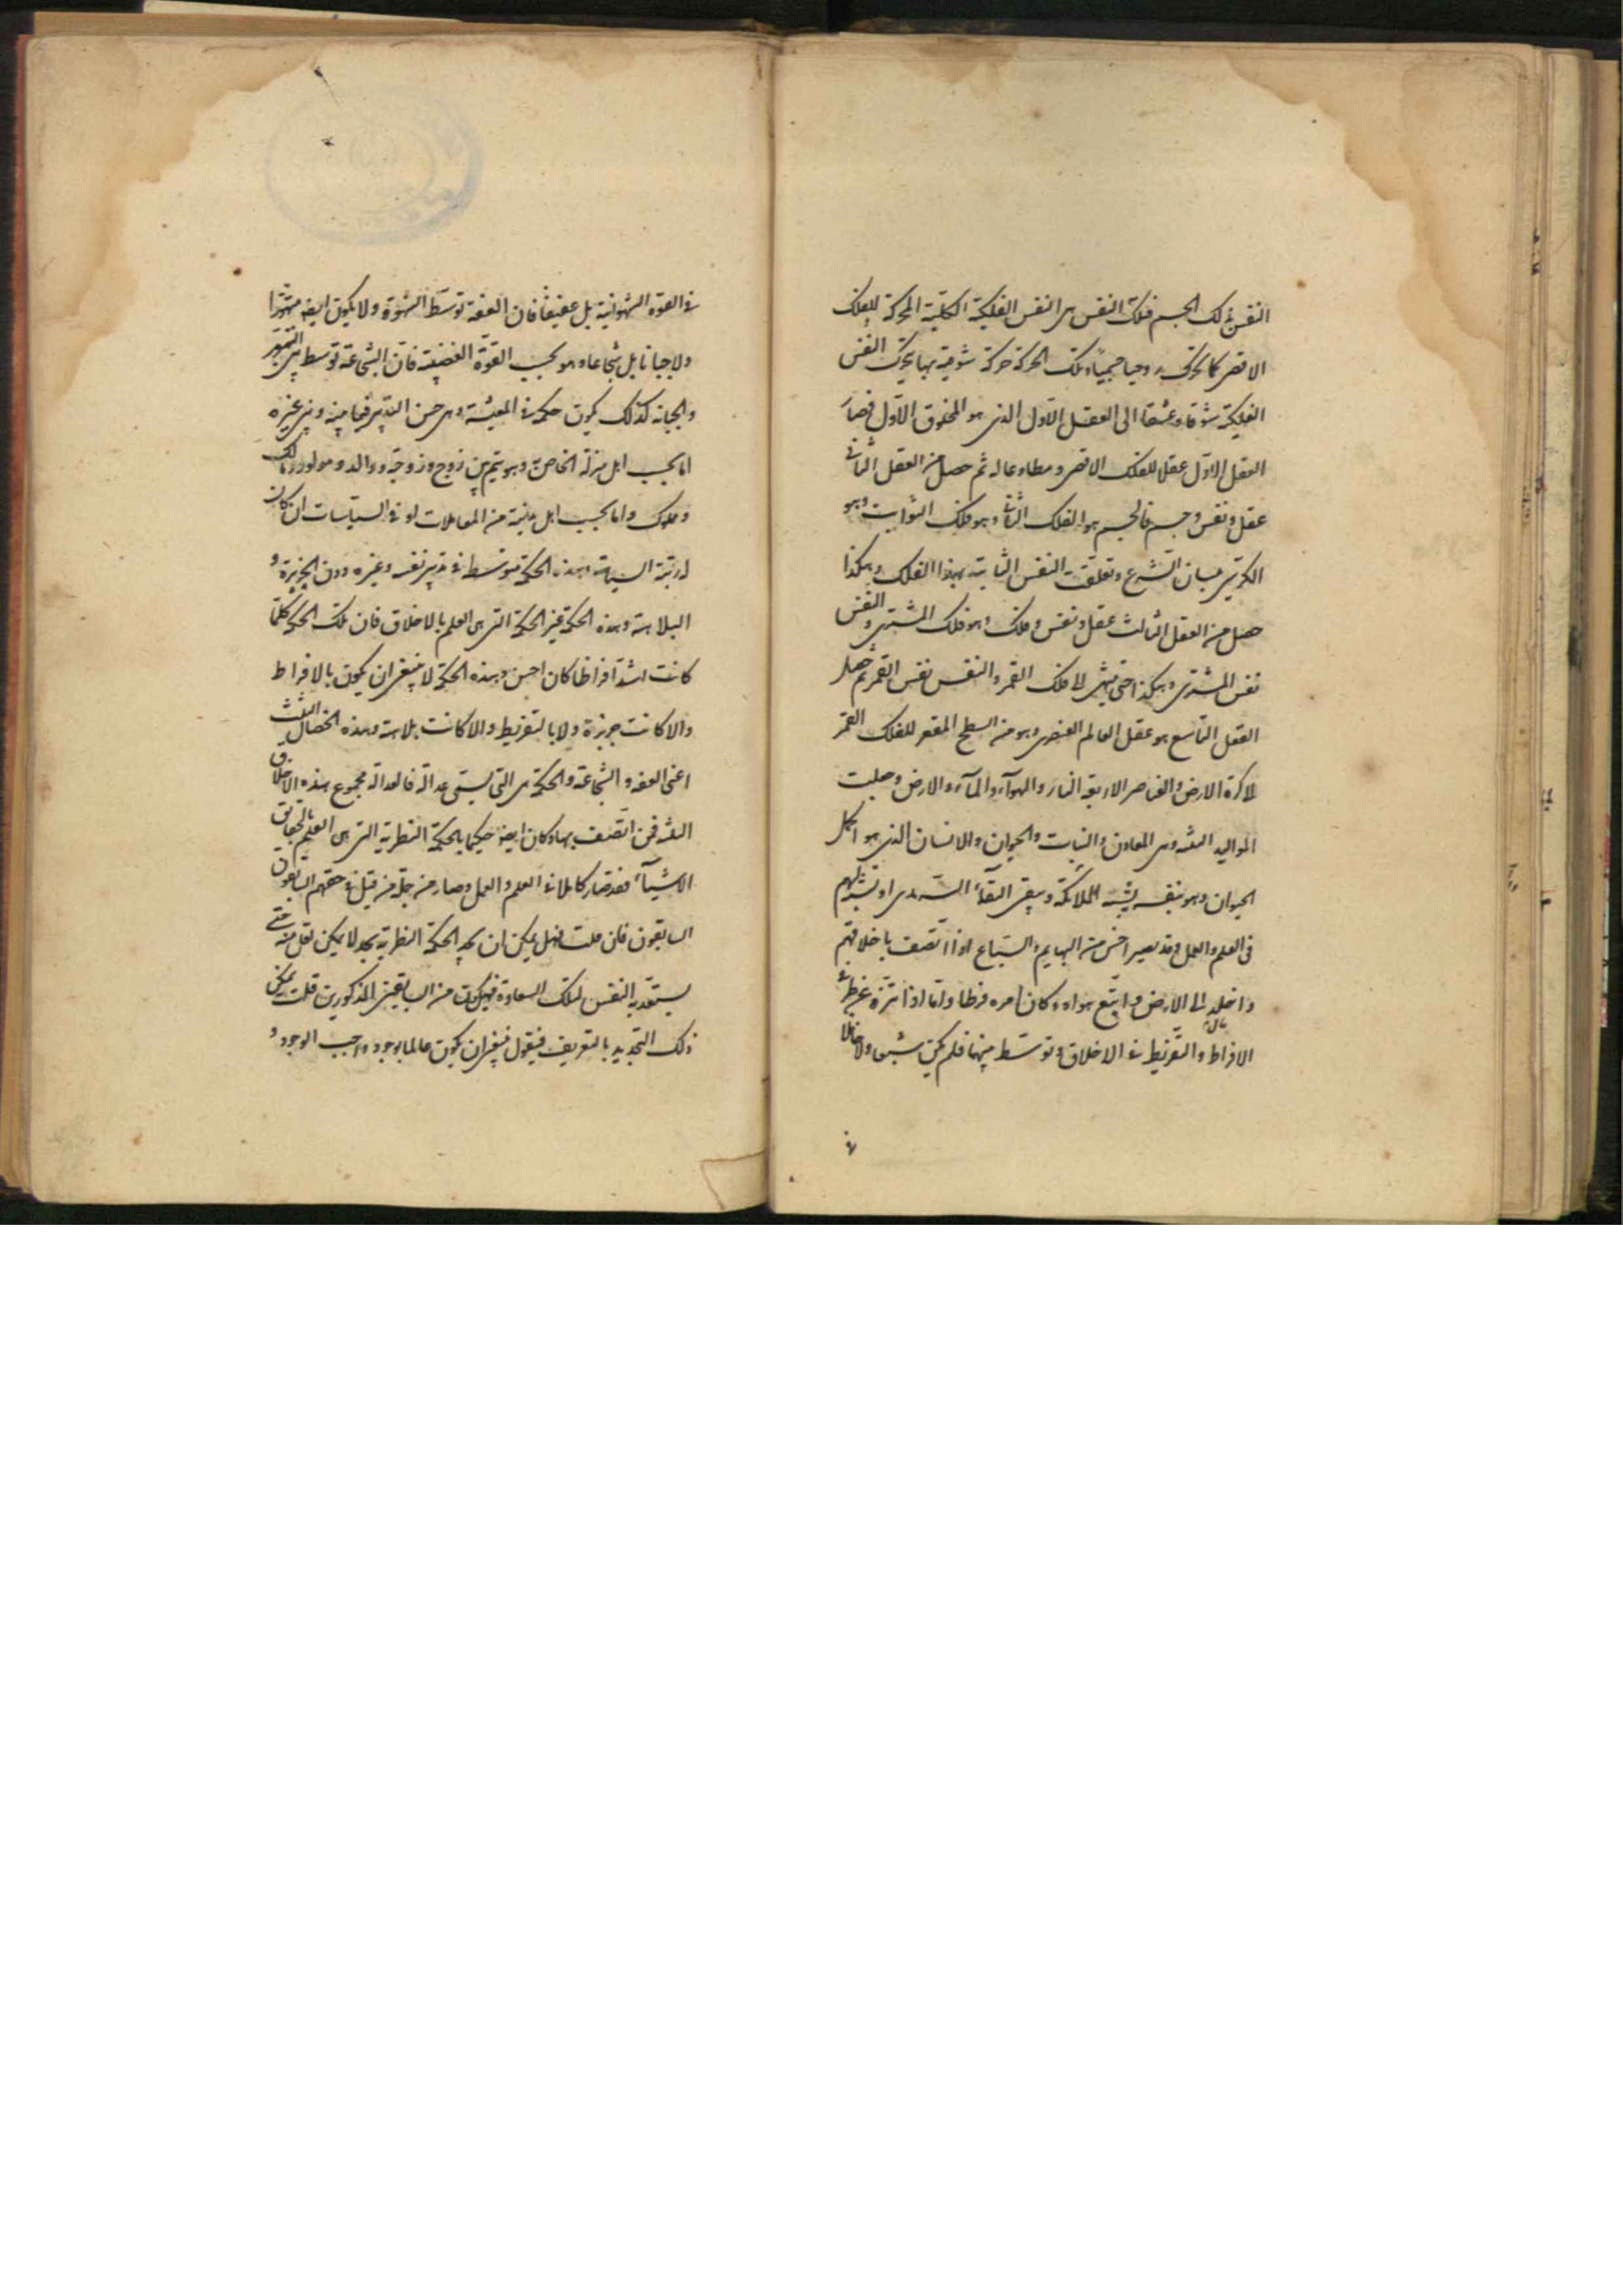 النفس ذلك الجسم فتلك النفس هى النفس الفلكية الكلية المحركة للفلك
الاقصى كما تحرك جسما تلك الحركة حركة شوقية بها تحرك النفس
الفلكية شوقا وعشقا الى العقل الاول الذى هو المخلوق الاول فصار
العقل الاول عقلا للفلك الاقصى ومطاوعا له ثم حصل من العقل الثانى
عقل ونفس وجسم فالجسم هو الفلك الثانى وهو فلك الثوابت وهو
الكرسى بلسان الشرع وتعلقت النفس الثانية بهذا الفلك وهكذا
حصل من العقل الثالث عقل ونفس وفلك وهو فلك المشترى والنفس
نفس المشترى وهكذا حتى ينتهى الى فلك القمر والنفس نفس القمر ثم حصل
العقل التاسع هو عقل العالم العنصرى وهو من السطح المقعر للفلك القمر
الى كرة الارض والعناصر الاربعة النار والهوآء والمآء والارض وحصلت
المواليد الثلثة وهى المعادن والنبات والحيوان والانسان الذى هو اكمل
الحيوان وهو بنفسه يشبه الملائكة ويبقى البقآء السرمدى اذ تشبه بهم
فى العلم والعمل وقد يصير اخس من البهايم والسباع اذا اتصف باخلاقهم
واخلد الى الارض واتبع هواه وكان امره فرطا واما اذا تنزه عن طرفى
الافراط والتفريط فى الاخلاق وتوسط بينهما فلم يكن شبقا ولا خاملا
فى
فى القوة الشهوانية بل عفيفا فان العفة توسط الشهوة ولا يكون ايضا متهورا
ولا جبانا بل شجاعا وهو بحسب القوة الغضبية فان الشجاعة توسط بين التهور
والجبانة كذلك يكون حكمه فى المعيشة وهى حسن التدبير فيما بينه وبين غيره
اما بحسب اهل منزله الخاص به وهو يتم بين زوج وزوجة ووالد ومولود ومالك
ومملوك واما بحسب اهل مدينة من المعاملات او فى السياسات ان كان
له رتبة السياسة وهذه الحكمة متوسط فى تدبير نفسه وغيره دون الجربزة و
البلاهة وهذه الحكمة غير الحكمة التى هى العلم بالاخلاق فان تلك الحكمة كلما
كانت اشد افراطا كان احسن وهذه الحكمة لا ينبغى ان يكون بالافراط
والا كانت جربزة ولا بالتفريط والا كانت بلاهة وهذه الخصال الثلث
اعنى العفة والشجاعة والحكمة هى التى يسمى عدالة فالعدالة مجموع هذه الاخلاق
الثلثة فمن اتصف بها وكان ايضا حكيما بالحكمة النظرية التى هى العلم بحقايق
الاشيآء فقد صار كاملا فى العلم والعمل وصار من جملة من قيل فى حقهم السابقون
السابقون فان قلت فهل يمكن ان يحد الحكمة النظرية بحد لا يمكن اقل منه حتى
يستعد به النفس لتلك السعادة فيكون من السابقين المذكورين قلت يمكن
ذلك التحديد بالتعريف فيقول فينبغى ان يكون عالما بوجود واجب الوجود و